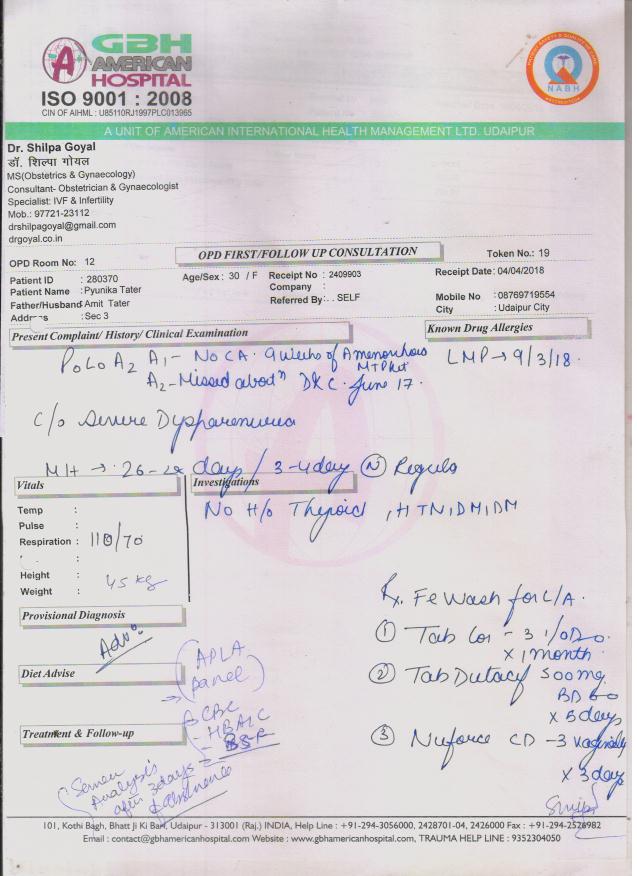 GBH
AMERICAN
HOSPITAL
ISO 9001 : 2008
CIN OF AIHML : U85110RJ1997PLC013965
NABH
A UNIT OF AMERICAN INTERNATIONAL HEALTH MANAGEMENT LTD. UDAIPUR
Dr. Shilpa Goyal
डॉ. शिल्पा गोयल
MS(Obstetrics & Gynaecology)
Consultant- Obstetrician & Gynaecologist
Specialist: IVF & Infertility
Mob.: 97721-23112
drshilpagoyal@gmail.com
drgoyal.co.in
OPD Room No: 12
OPD FIRST/FOLLOW UP CONSULTATION
Token No.: 19
Patient ID : 280370 Age/Sex: 30 / F Receipt No : 2409903 Receipt Date: 04/04/2018
Patient Name : Pyunika Tater Company :
Father/Husband: Amit Tater Referred By: . . SELF Mobile No :08769719554
:Sec 3 City :Udaipur City
Present Complaint/ History/ Clinical Examination
Known Drug Allergies
P0L0A2 A1- No CA. 9 weeks of Amenorrhoea LMP → 9/3/18.
MTP kit
A2-Missed abortn D&C. June 17.
C/o Severe Dyspareunia
MH → 26-28 days / 3-4 day (N) Regular
Vitals
Investigations
No H/o Thyroid , HTN, DM, DM
Temp :
Pulse :
Respiration : 110/70
Height :
Weight : 45 kg
Provisional Diagnosis
Adv:
Diet Advise
(APLA
panel)
CBC
- HBA1C
Treatment & Follow-up
Semen
Analysis
after 3 days
of abstinence
Rx. Fe Wash for L/A.
① Tab - 3 1/OD
x 1 month
② Tab 500mg
BD
x 5 days
③ Nuforce CD -3 vaginally
x 3 days
101, Kothi Bagh, Bhatt Ji Ki Bari, Udaipur - 313001 (Raj.) INDIA, Help Line : +91-294-3056000, 2428701-04, 2426000 Fax : +91-294-2526982
Email : contact@gbhamericanhospital.com, Website : www.gbhamericanhospital.com, TRAUMA HELP LINE : 9352304050